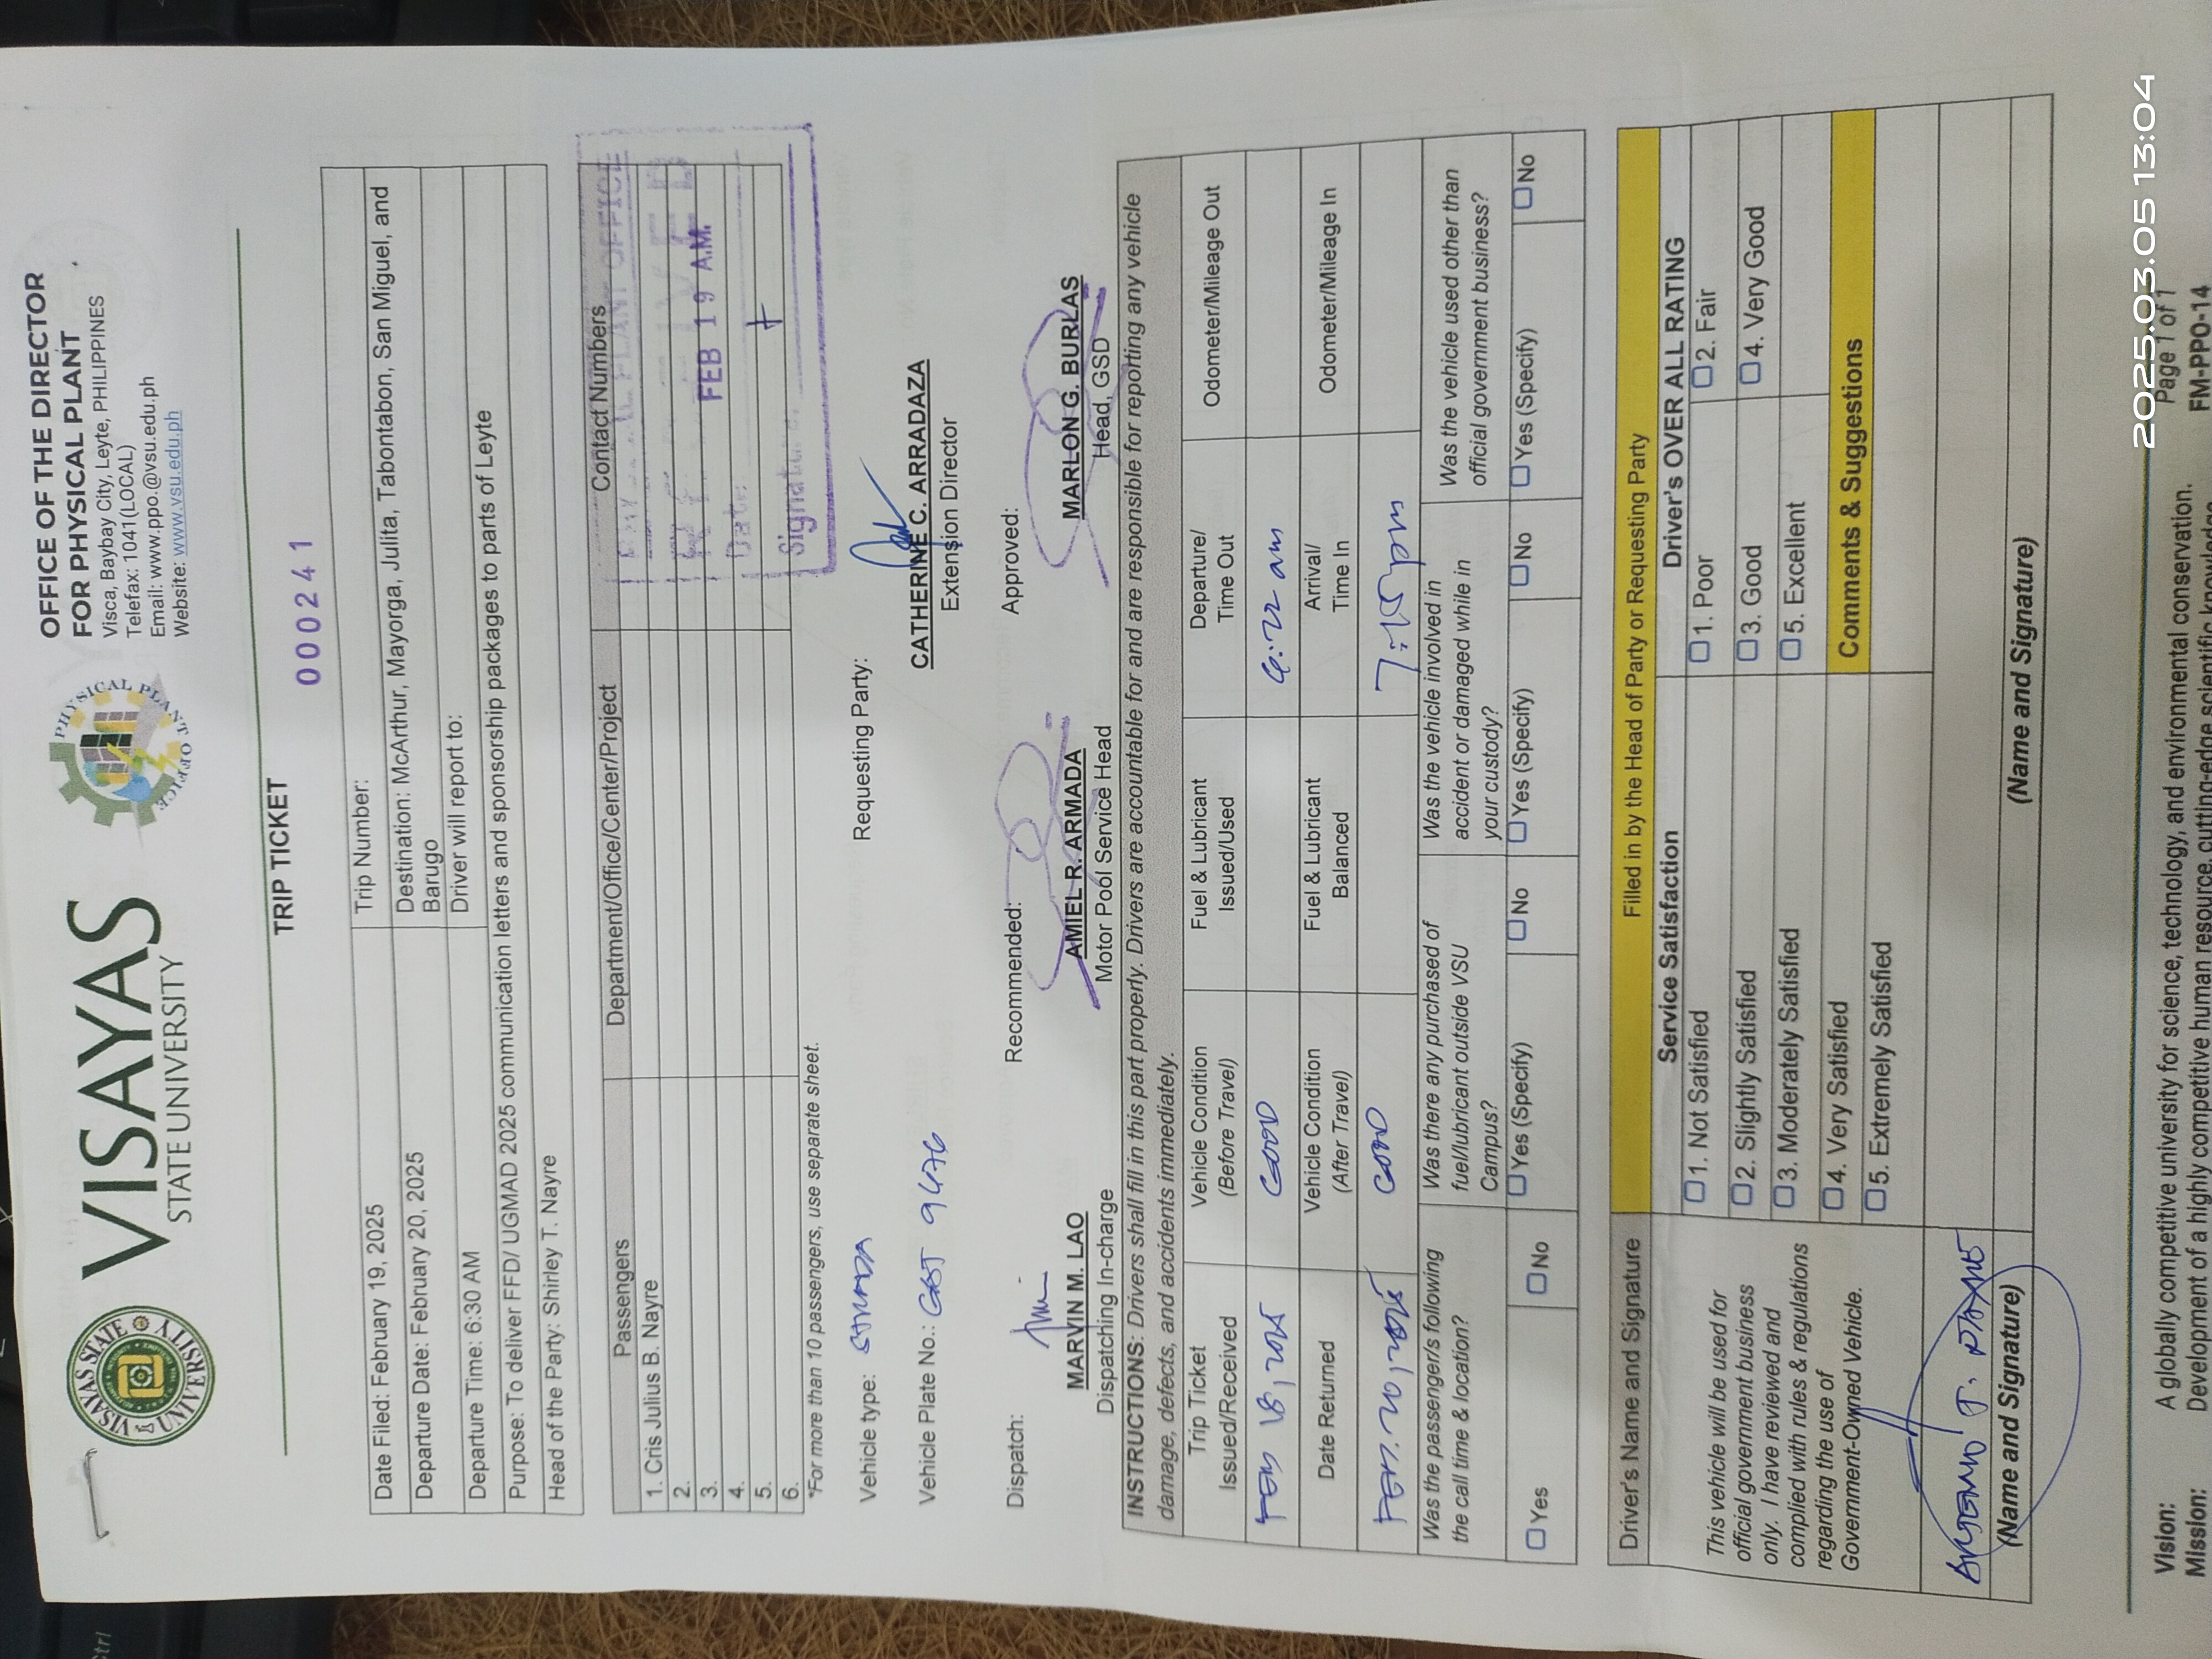 VISAYAS STATE UNIVERSITY
VISAYAS
STATE UNIVERSITY
PHYSICAL PLANT OFFICE
OFFICE OF THE DIRECTOR
FOR PHYSICAL PLANT
Visca, Baybay City, Leyte, PHILIPPINES
Telefax: 1041(LOCAL)
Email: www.ppo.@vsu.edu.ph
Website: www.vsu.edu.ph
TRIP TICKET
000241
Date Filed: February 19, 2025
Trip Number:
Departure Date: February 20, 2025
Destination: McArthur, Mayorga, Julita, Tabontabon, San Miguel, and
Barugo
Departure Time: 6:30 AM
Driver will report to:
Purpose: To deliver FFD/ UGMAD 2025 communication letters and sponsorship packages to parts of Leyte
Head of the Party: Shirley T. Nayre
Passengers
Department/Office/Center/Project
Contact Numbers
1. Cris Julius B. Nayre
2.
3.
4.
5.
6.
PLANT OFFICE
Date:
FEB 19 A.M.
Signature
*For more than 10 passengers, use separate sheet.
Vehicle type: STRADA
Requesting Party:
Vehicle Plate No.:
CATHERINE C. ARRADAZA
Extension Director
Dispatch:
Recommended:
Approved:
MARVIN M. LAO
AMIEL R. ARMADA
MARLON G. BURLAS
Dispatching In-charge
Motor Pool Service Head
Head, GSD
INSTRUCTIONS: Drivers shall fill in this part properly. Drivers are accountable for and are responsible for reporting any vehicle
damage, defects, and accidents immediately.
Trip Ticket
Issued/Received
Vehicle Condition
(Before Travel)
Fuel & Lubricant
Issued/Used
Departure/
Time Out
Odometer/Mileage Out
FEB 18, 2025
GOOD
6:22 am
Date Returned
Vehicle Condition
(After Travel)
Fuel & Lubricant
Balanced
Arrival/
Time In
Odometer/Mileage In
FEB. 20, 2025
GOOD
Was the passenger/s following
the call time & location?
Was there any purchased of
fuel/lubricant outside VSU
Campus?
Was the vehicle involved in
accident or damaged while in
your custody?
Was the vehicle used other than
official government business?
Yes
No
Yes (Specify)
No
Yes (Specify)
No
Yes (Specify)
No
Driver's Name and Signature
Filled in by the Head of Party or Requesting Party
This vehicle will be used for
official government business
only. I have reviewed and
complied with rules & regulations
regarding the use of
Government-Owned Vehicle.
Service Satisfaction
Driver's OVER ALL RATING
1. Not Satisfied
1. Poor
2. Fair
2. Slightly Satisfied
3. Good
4. Very Good
3. Moderately Satisfied
5. Excellent
4. Very Satisfied
Comments & Suggestions
5. Extremely Satisfied
(Name and Signature)
(Name and Signature)
Vision: A globally competitive university for science, technology, and environmental conservation.
Mission: Development of a highly competitive human resource, cutting-edge scientific knowledge
Page 1 of 1
FM-PPO-14
2025.03.05 13:04
Ctrl